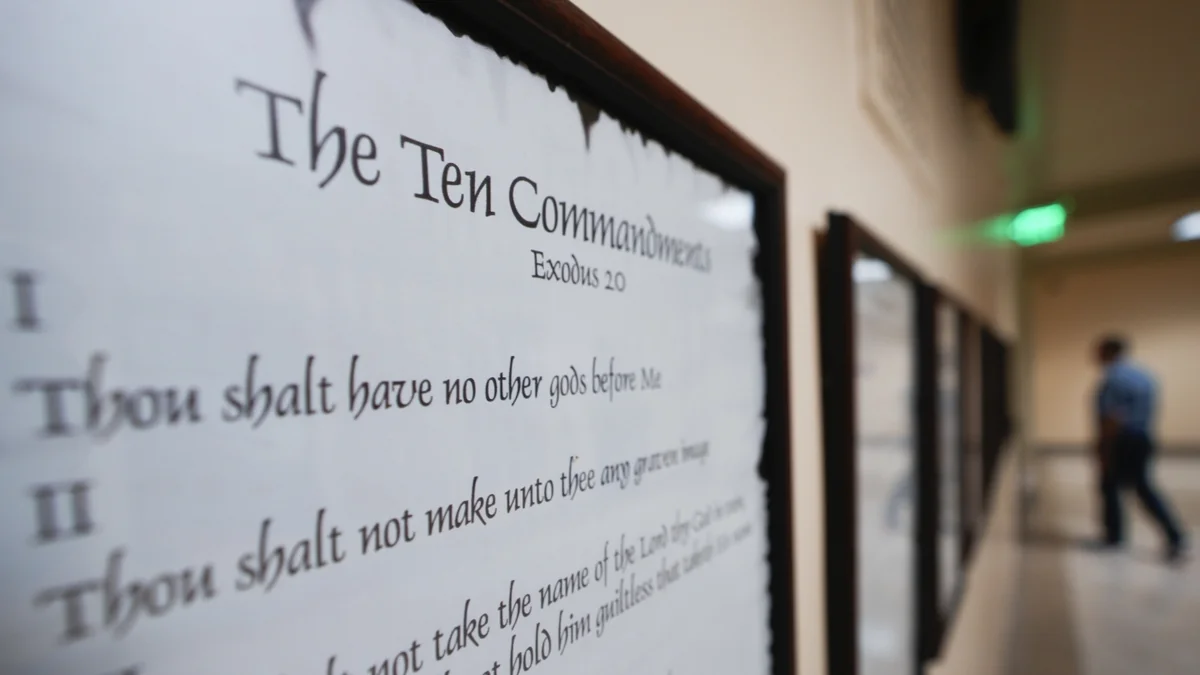 The Ten Commandments
Exodus 20
I
Thou shalt have no other gods before Me
II
Thou shalt not make unto thee any graven image
not take the name of the Lord thy God in vain,
hold him guiltless that taketh His name